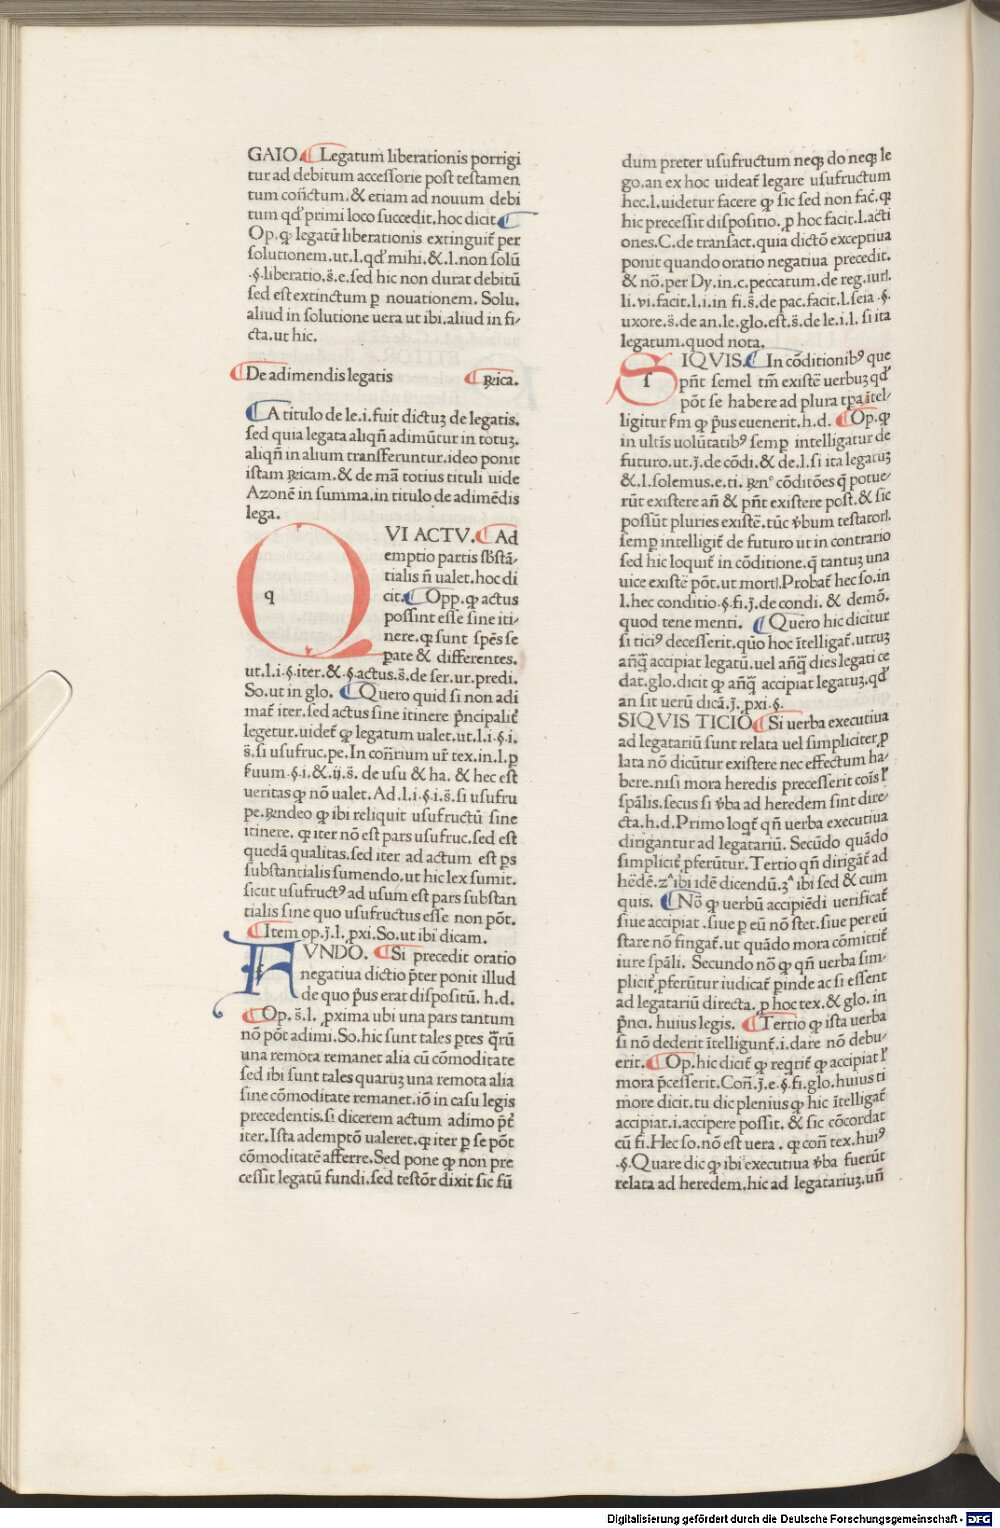 GAIO. Legatum liberationis porrigi
tur ad debitum accessorie post testamen
tum coñctum. & etiam ad nouum debi
tum qđ primi loco succedit. hoc dicit.
Op. ꝙ legatū liberationis extinguiť per
solutionem. ut. l. qđ mihi. & .l. non solū
.§. liberatio. s̄. e. sed hic non durat debitū
sed est extinctum ꝑ nouationem. Solu.
aliud in solutione uera ut ibi. aliud in fi-
cta. ut hic.
De adimendis legatis ꝶica.
A titulo de le. i. fuit dictuꝫ de legatis.
sed quia legata aliqñ adimūtur in totuꝫ.
aliqñ in alium transferuntur. ideo ponit
istam ꝶicam. & de mā totius tituli uide
Azonē in summa. in titulo de adimēdis
lega.
q
VI ACTV. Ad
emptio partis sbstā-
tialis ñ ualet. hoc di
cit. Opp. ꝙ actus
possint esse sine iti-
nere. ꝙ sunt spēs se
pate & differentes.
ut. l. i. §. iter. & .§. actus. s̄. de ser. ur. predi.
So. ut in glo. Quero quid si non adi
mať iter. sed actus sine itinere p̄ncipaliť
legetur. uideť ꝙ legatum ualet. ut. l. i. §. i.
s̄. si usufruc. pe. In coñrium ur̄ tex. in. l. ꝑ
ẜuum. §. i. & .ij. s̄. de usu & ha. & hec est
ueritas ꝙ nō ualet. Ad. l. i. §. i. s̄. si usufru
pe. ꝶndeo ꝙ ibi reliquit usufructū sine
itinere. ꝙ iter nō est pars usufruc. sed est
quedā qualitas. sed iter ad actum est ps
substantialis sumendo. ut hic lex sumit.
sicut usufructꝰ ad usum est pars substan
tialis sine quo usufructus esse non pōt.
Item op. j̄. l. ꝓxi. So. ut ibi dicam.
f
VNDO. Si precedit oratio
negatiua dictio p̄ter ponit illud
de quo p̄us erat dispositū. h. d.
Op. s̄. l. ꝓxima ubi una pars tantum
nō pōt adimi. So. hic sunt tales ptes q̄rū
una remota remanet alia cū cōmoditate
sed ibi sunt tales quaruꝫ una remota alia
sine cōmoditate remanet. iō in casu legis
precedentis. si dicerem actum adimo p̄ť
iter. Ista ademptō ualeret. ꝙ iter ꝑ se pōt
cōmoditatē afferre. Sed pone ꝙ non pre
cessit legatū fundi. sed testōr dixit sic fū
dum preter usufructum neqꝫ do neqꝫ le
go. an ex hoc uideať legare usufructum
hec. l. uidetur facere ꝙ sic sed non fać. ꝙ
hic precessit dispositio. ꝓ hoc facit. l. acti
ones. C. de transact. quia dictō exceptiua
ponit quando oratio negatiua precedit.
& nō. per Dy. in. c. peccatum. de reg. iurꝭ.
li. vi. facit. l. i. in fi. s̄. de pac. facit. l. seia .§.
uxore. s̄. de an. le. glo. est. s̄. de le. i. l. si ita
legatum. quod nota.
f
IQVIS. In cōditionibꝰ que
pñt semel tm̄ existē uerbuꝫ qđ
pōt se habere ad plura tpa ītel-
ligitur ẜm ꝙ p̄us euenerit. h. d. Op. ꝙ
in ultīs uolūtatibꝰ semp intelligatur de
futuro. ut. j̄. de cōdi. & de. l. si ita legatuꝫ
& .l. solemus. e. ti. ꝶn° cōditōes q̄ potue-
rūt existere añ & pñt existere post. & sic
possūt pluries existē. tūc v̄bum testatorꝭ.
semp intelligiť de futuro ut in contrario
sed hic loquiť in cōditione. q̄ tantuꝫ una
uice existē pōt. ut mortꝭ. Probať hec so. in
l. hec conditio .§. fi. j̄. de condi. & demō.
quod tene menti. Quero hic dicitur
si ticiꝰ decesserit. quo hoc ītelligať. utruꝫ
añq̄ accipiat legatū. uel añq̄ dies legati ce
dat. glo. dicit ꝙ añq̄ accipiat legatuꝫ. qđ
an sit uerū dicā. j̄. ꝓxi. §.
SIQVIS TICIO Si uerba executiua
ad legatariū sunt relata uel simpliciter. ꝓ
lata nō dicūtur existere nec effectum ha-
bere. nisi mora heredis precesserit coīs ł
spālis. secus si v̄ba ad heredem sint dire-
cta. h. d. Primo loqť qñ uerba executiua
dirigantur ad legatariū. Secūdo quādo
simpliciť ꝓferūtur. Tertio qñ dirigāť ad
hēdē. 2ᵃ ibi idē dicendū. 3ᵃ ibi sed & cum
quis. Nō ꝙ uerbū accipiēdi uerificať
siue accipiat. siue ꝑ eū nō stet. siue per eū
stare nō fingať. ut quādo mora cōmittiť
iure spāli. Secundo nō ꝙ qñ uerba sim-
pliciť ꝓferūtur iudicať perinde ac si essent
ad legatariū directa. ꝓ hoc tex. & glo. in
p̄nci. huius legis. Tertio ꝙ ista uerba
si nō dederit ītelligunť. i. dare nō debu-
erit. Op. hic diciť ꝙ reqriť ꝙ accipiat ł
mora p̄cesserit. Coñ. j̄. e. §. fi. glo. huius ti
more dicit. tu dic plenius ꝙ hic ītelligať
accipiat. i. accipere possit. & sic cōcordat
cū fi. Hec so. nō est uera. ꝙ coñ tex. huiꝰ
.§. Quare dic ꝙ ibi executiua v̄ba fuerūt
relata ad heredem. hic ad legatariuꝫ. uñ
Digitalisierung gefördert durch die Deutsche Forschungsgemeinschaft - DFG